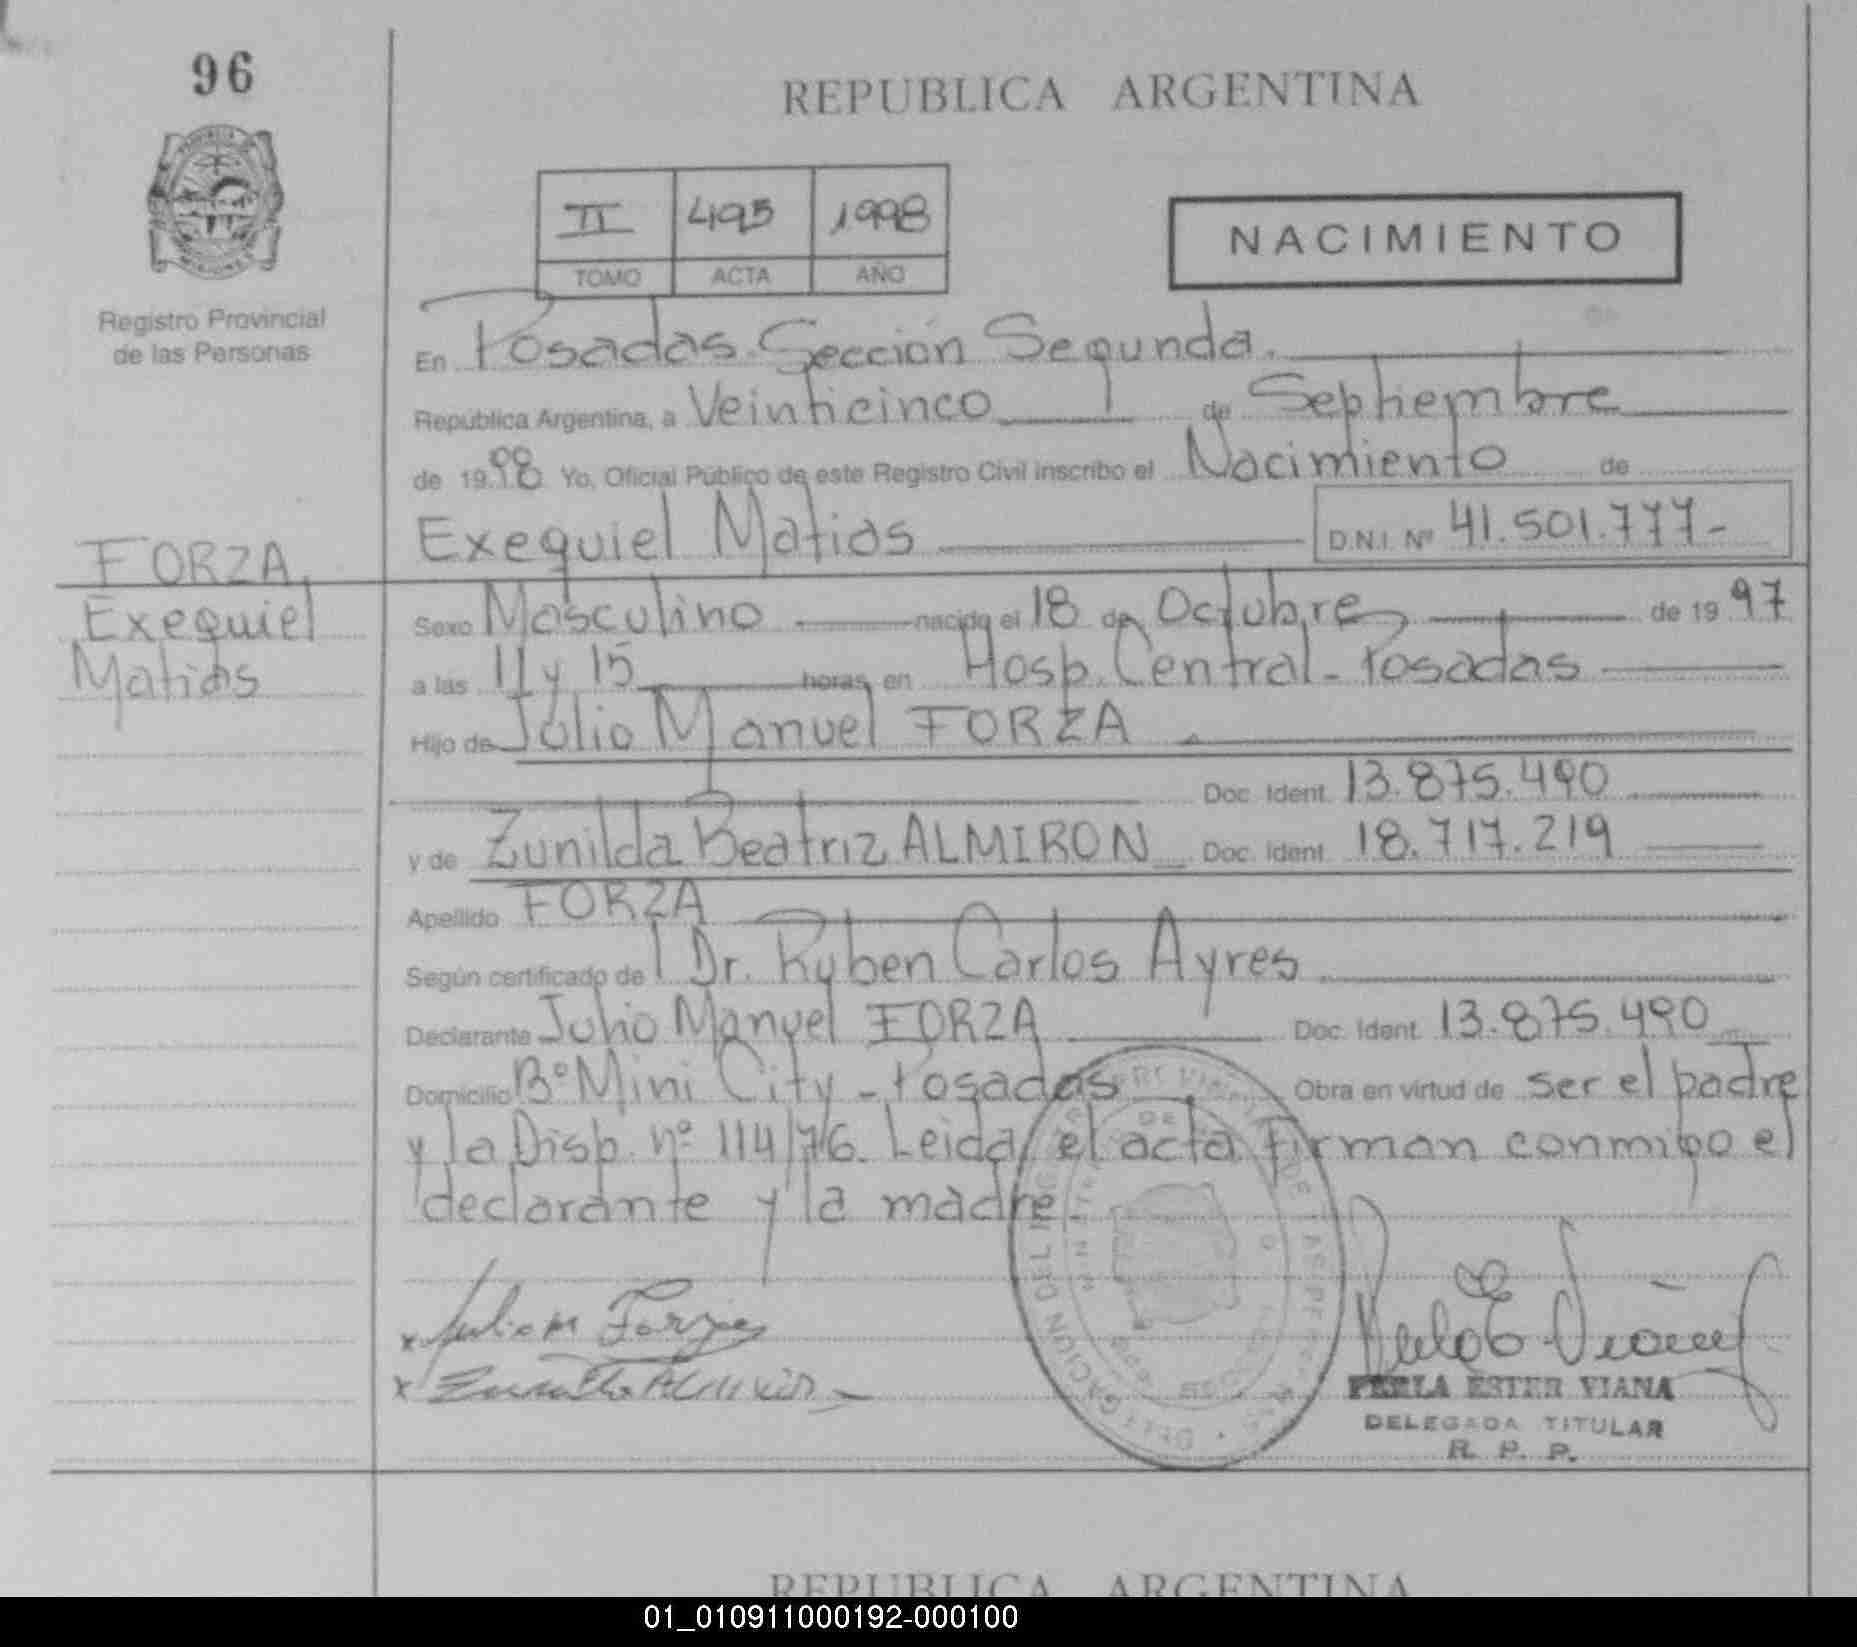 96
REPUBLICA ARGENTINA
II 495 1998
TOMO ACTA AÑO
NACIMIENTO
Registro Provincial
de las Personas
En Posadas. Sección Segunda.
República Argentina, a Veinticinco de Septiembre
de 1998 Yo, Oficial Público de este Registro Civil inscribo el Nacimiento de
Exequiel Matias D.N.I. Nº 41.501.777-
FORZA
Exequiel
Matias
Sexo Masculino nacido el 18 de Octubre de 1997
a las 11 y 15 horas, en Hosp. Central - Posadas
Hijo de Julio Manuel FORZA
Doc. Ident. 13.875.490
y de Zunilda Beatriz ALMIRON Doc. Ident. 18.717.219
Apellido FORZA
Según certificado de Dr. Ruben Carlos Ayres
Declarante Julio Manuel FORZA Doc. Ident. 13.875.490
Domicilio Bº Mini City - Posadas Obra en virtud de ser el padre
y la Disp. nº 114/76. Leida el acta firman conmigo el
declarante y la madre.
x Julio M Forza
x Zunilda Almiron
PERLA ESTER VIANA
DELEGADA TITULAR
R. P. P.
REPUBLICA ARGENTINA
01_010911000192-000100